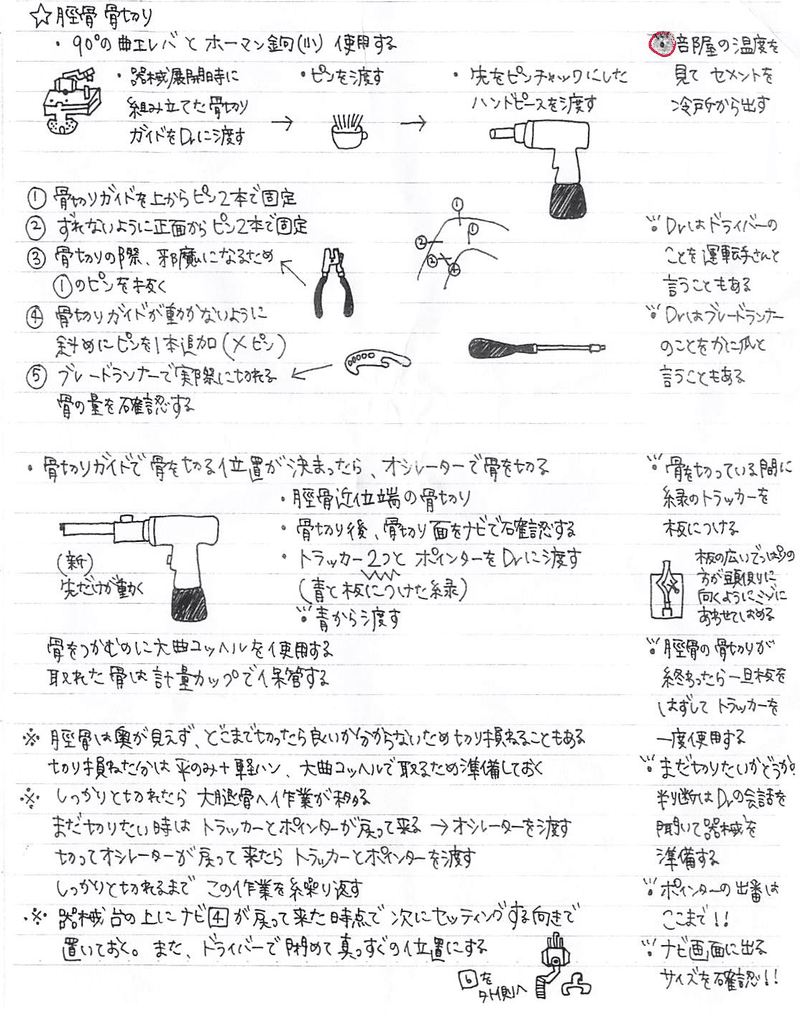 ☆脛骨 骨切り
・90°の曲エレバとホーマン鉤(小)使用する
・器械展開時に
組み立てた骨切り
ガイドをDrに渡す
→
・ピンを渡す
→
・先をピンチャックにした
ハンドピースを渡す
部屋の温度を
見て セメントを
冷所から出す
① 骨切りガイドを上からピン2本で固定
② ずれないように正面からピン2本で固定
③ 骨切りの際、邪魔になるため
①のピンを抜く
④ 骨切りガイドが動かないように
斜めにピンを1本追加(×ピン)
⑤ ブレードランナーで実際に切れる
骨の量を確認する
①
①
②
③
④
※Drはドライバーの
ことを運転手さんと
言うこともある
※Drはブレードランナー
のことをかに爪と
言うこともある
・骨切りガイドで骨を切る位置が決まったら、オシレーターで骨を切る
(新)
先だけが動く
・脛骨近位端の骨切り
・骨切り後、骨切り面をナビで確認する
・トラッカー2つとポインターをDrに渡す
(青と板につけた緑)
※青から渡す
骨をつかむのに大曲コッヘルを使用する
取れた骨は計量カップで保管する
※骨を切っている間に
緑のトラッカーを
板につける
板の広いでっぱりの
方が頭側に
向くようにミゾに
あわせてしめる
※脛骨の骨切りが
終わったら一旦板を
はずしてトラッカーを
一度使用する
※ 脛骨は奥が見えず、どこまで切ったら良いか分からないため切り損ねることもある
切り損ねた分は平のみ+軽ハン、大曲コッヘルで取るため準備しておく
※ しっかりと切れたら 大腿骨へ作業が移る
まだ切りたい時は トラッカーとポインターが戻って来る → オシレーターを渡す
切ってオシレーターが戻って来たら トラッカーとポインターを渡す
しっかりと切れるまで この作業を繰り返す
※ 器械台の上にナビ4が戻って来た時点で次にセッティングする向きで
置いておく。また、ドライバーで閉めて真っすぐの位置にする
6を
外側へ
※まだ切りたいかどうか
判断はDrの会話を
聞いて器械を
準備する
※ポインターの出番は
ここまで!!
※ナビ画面に出る
サイズを確認!!